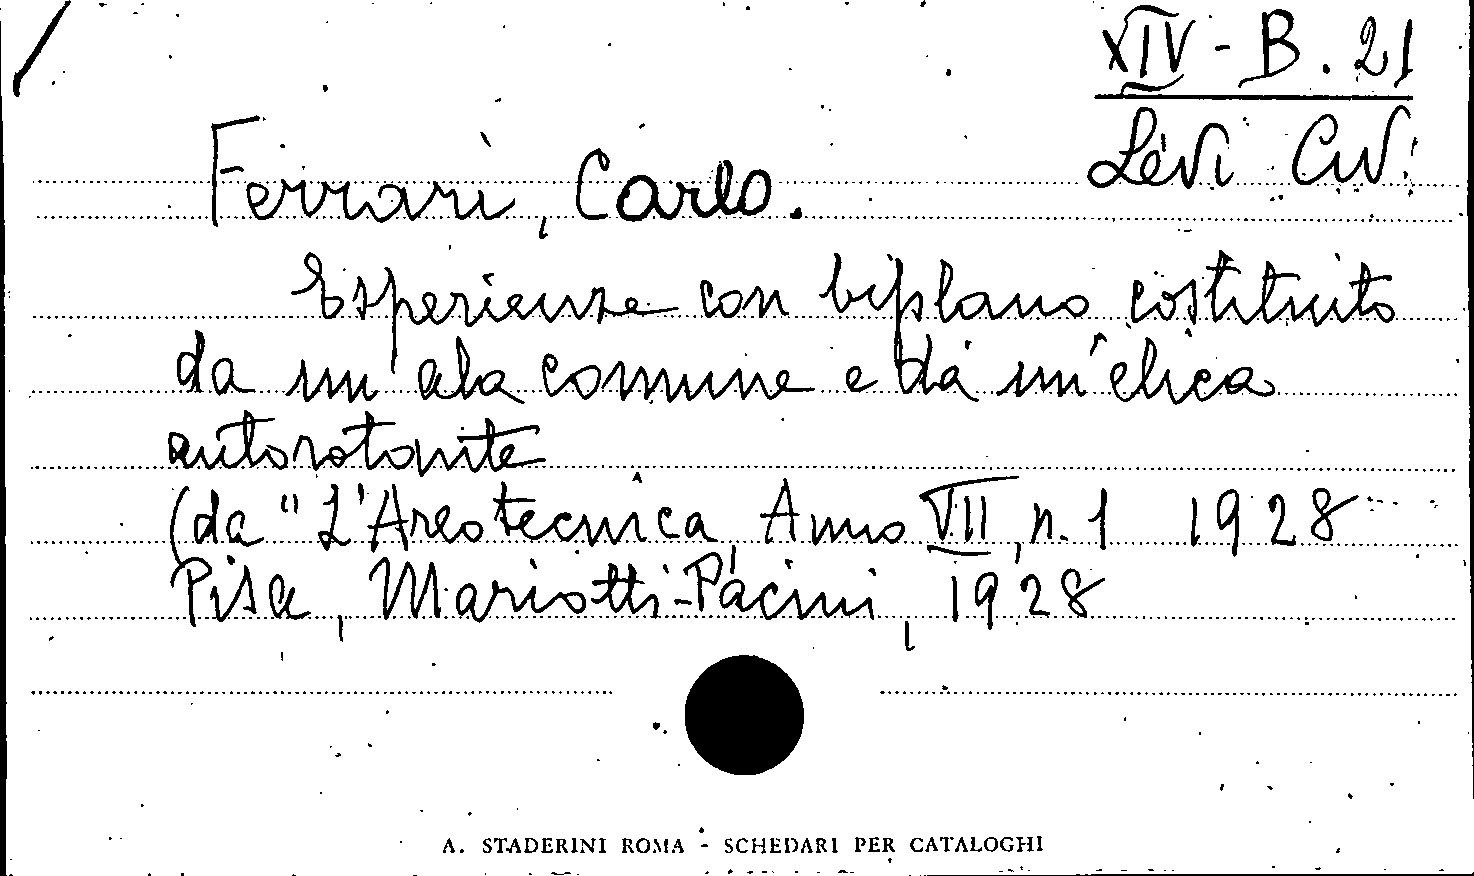 XIV - B. 21
Levi Civ.
Ferrari, Carlo.
Esperienze con biplano costituito
da un'ala comune e da un'elica
autorotante
(da "L'Areotecnica, Anno VII, n. 1 1928
Pisa, Mariotti-Pacini, 1928
A. STADERINI ROMA - SCHEDARI PER CATALOGHI